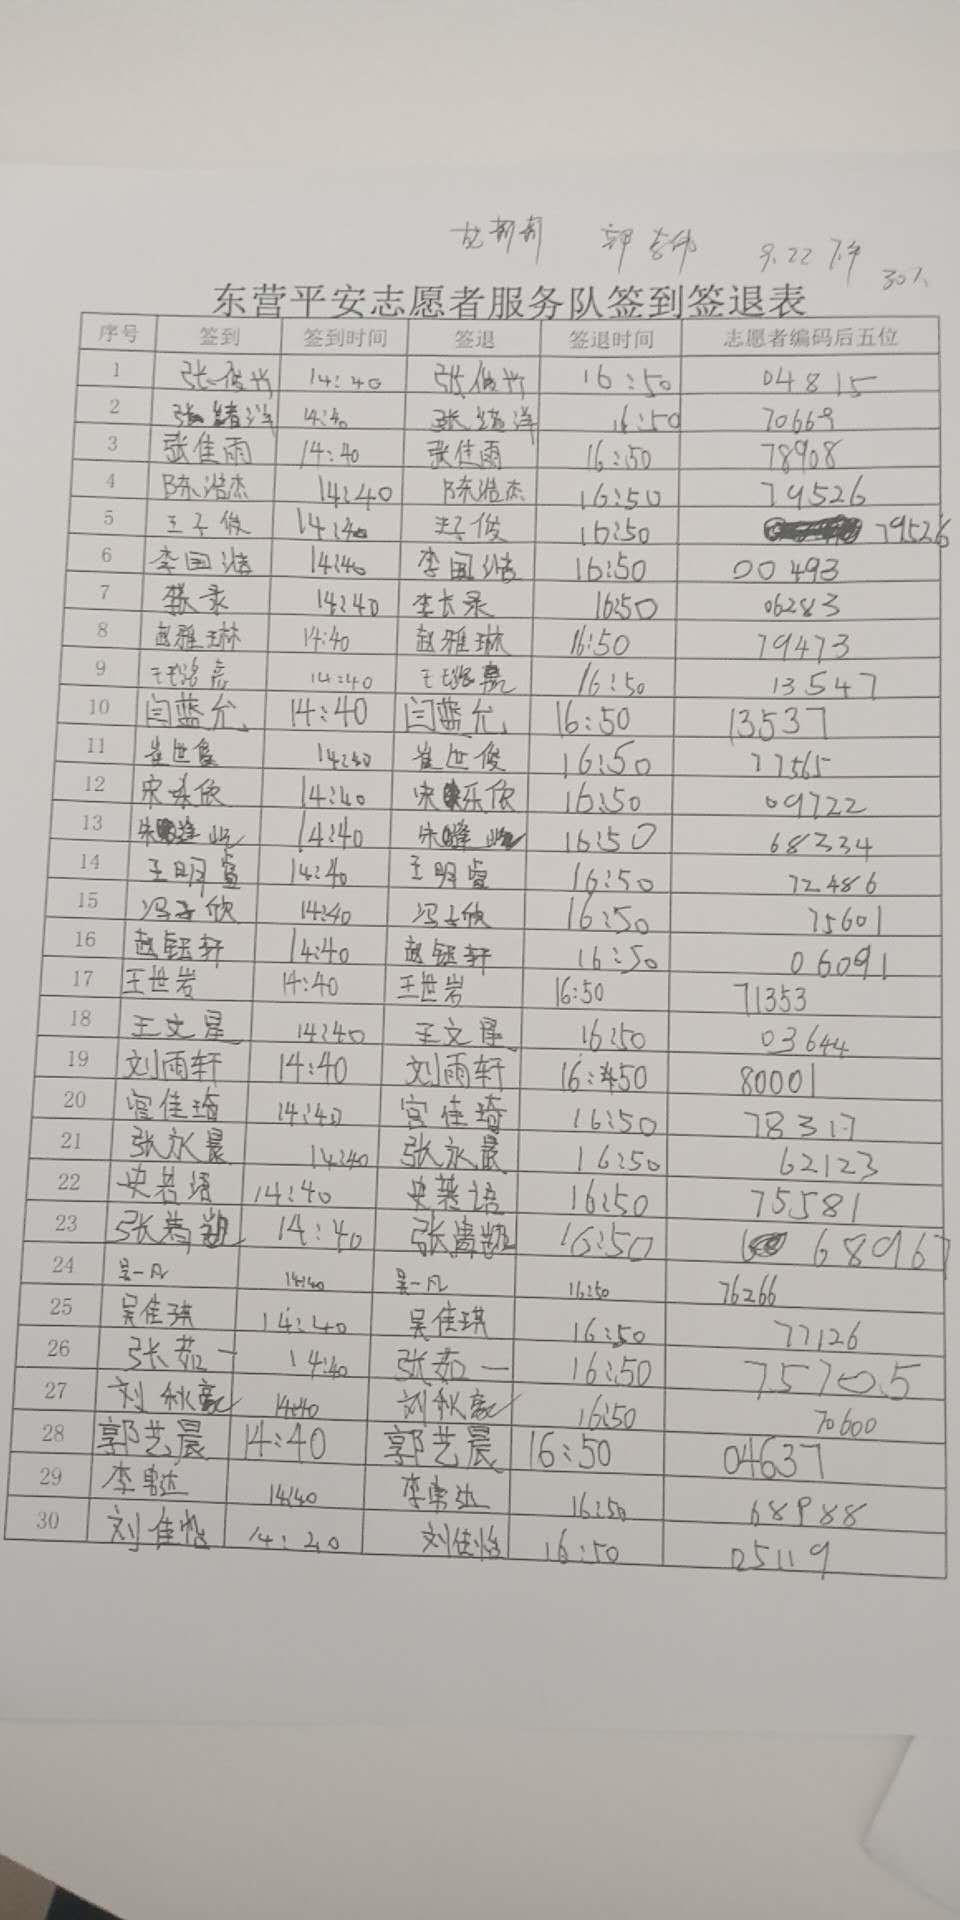 9.22 下午
30人
东营平安志愿者服务队签到签退表
序号 签到 签到时间 签退 签退时间 志愿者编码后五位
1 张俊竹 14:40 张俊竹 16:50 04815
2 张绪洋 14:40 张绪洋 16:50 70669
3 张佳雨 14:40 张佳雨 16:50 78908
4 陈浩杰 14:40 陈浩杰 16:50 79526
5 王子俊 14:40 王子俊 16:50 79526
6 李国浩 14:40 李国浩 16:50 00493
7 14:40 李长录 16:50 06283
8 赵雅琳 14:40 赵雅琳 16:50 79473
9 14:40 16:50 13547
10 闫蓝允 14:40 闫蓝允 16:50 13537
11 崔世俊 14:40 崔世俊 16:50 77565
12 宋乐欣 14:40 宋乐欣 16:50 09722
13 14:40 16:50 68234
14 王明睿 14:40 王明睿 16:50 72486
15 冯子欣 14:40 冯子欣 16:50 75601
16 赵钰轩 14:40 赵钰轩 16:50 06091
17 王世岩 14:40 王世岩 16:50 71353
18 王文星 14:40 王文星 16:50 03644
19 刘雨轩 14:40 刘雨轩 16:50 80001
20 宫佳琦 14:40 宫佳琦 16:50 78317
21 张永晨 14:40 张永晨 16:50 62123
22 史若语 14:40 史若语 16:50 75581
23 14:40 16:50 68967
24 吴一凡 14:40 吴一凡 16:50 76266
25 吴佳琪 14:40 吴佳琪 16:50 77126
26 张茹一 14:40 张茹一 16:50 75705
27 刘秋豪 14:40 刘秋豪 16:50 70600
28 郭艺晨 14:40 郭艺晨 16:50 04637
29 14:40 16:50 68988
30 刘佳怡 14:20 刘佳怡 16:50 05119